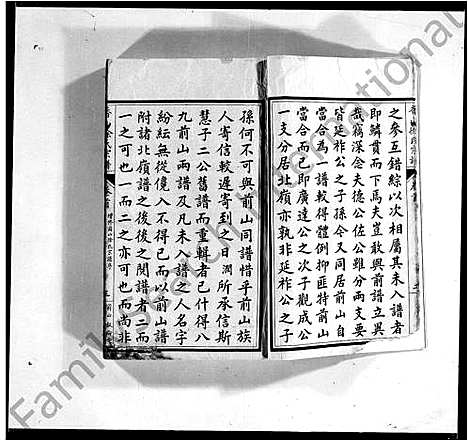 之參互錯綜以次相屬其未入譜者
即鱗貫而下馬夫豈敢與前譜立異
哉竊深念夫德公佐公雖分兩支要
皆延祚公之子孫令又同居前山自
當合為一譜較得體例抑匪特前山
當合而已即廣達公之次子觀成公
一支分居北嶺亦孰非延祚公之子
孫何不可與前山同譜惜乎前山族
人寄信較遲寄到之日潤所承信斯
慧子二公舊譜而重輯者已什得八
九前山兩譜及凡未入譜之人名字
紛紜無從儳入不得已而以前山譜
附諸北嶺譜之後後之閱譜者二而
一之可也一而二之亦可也而尚非